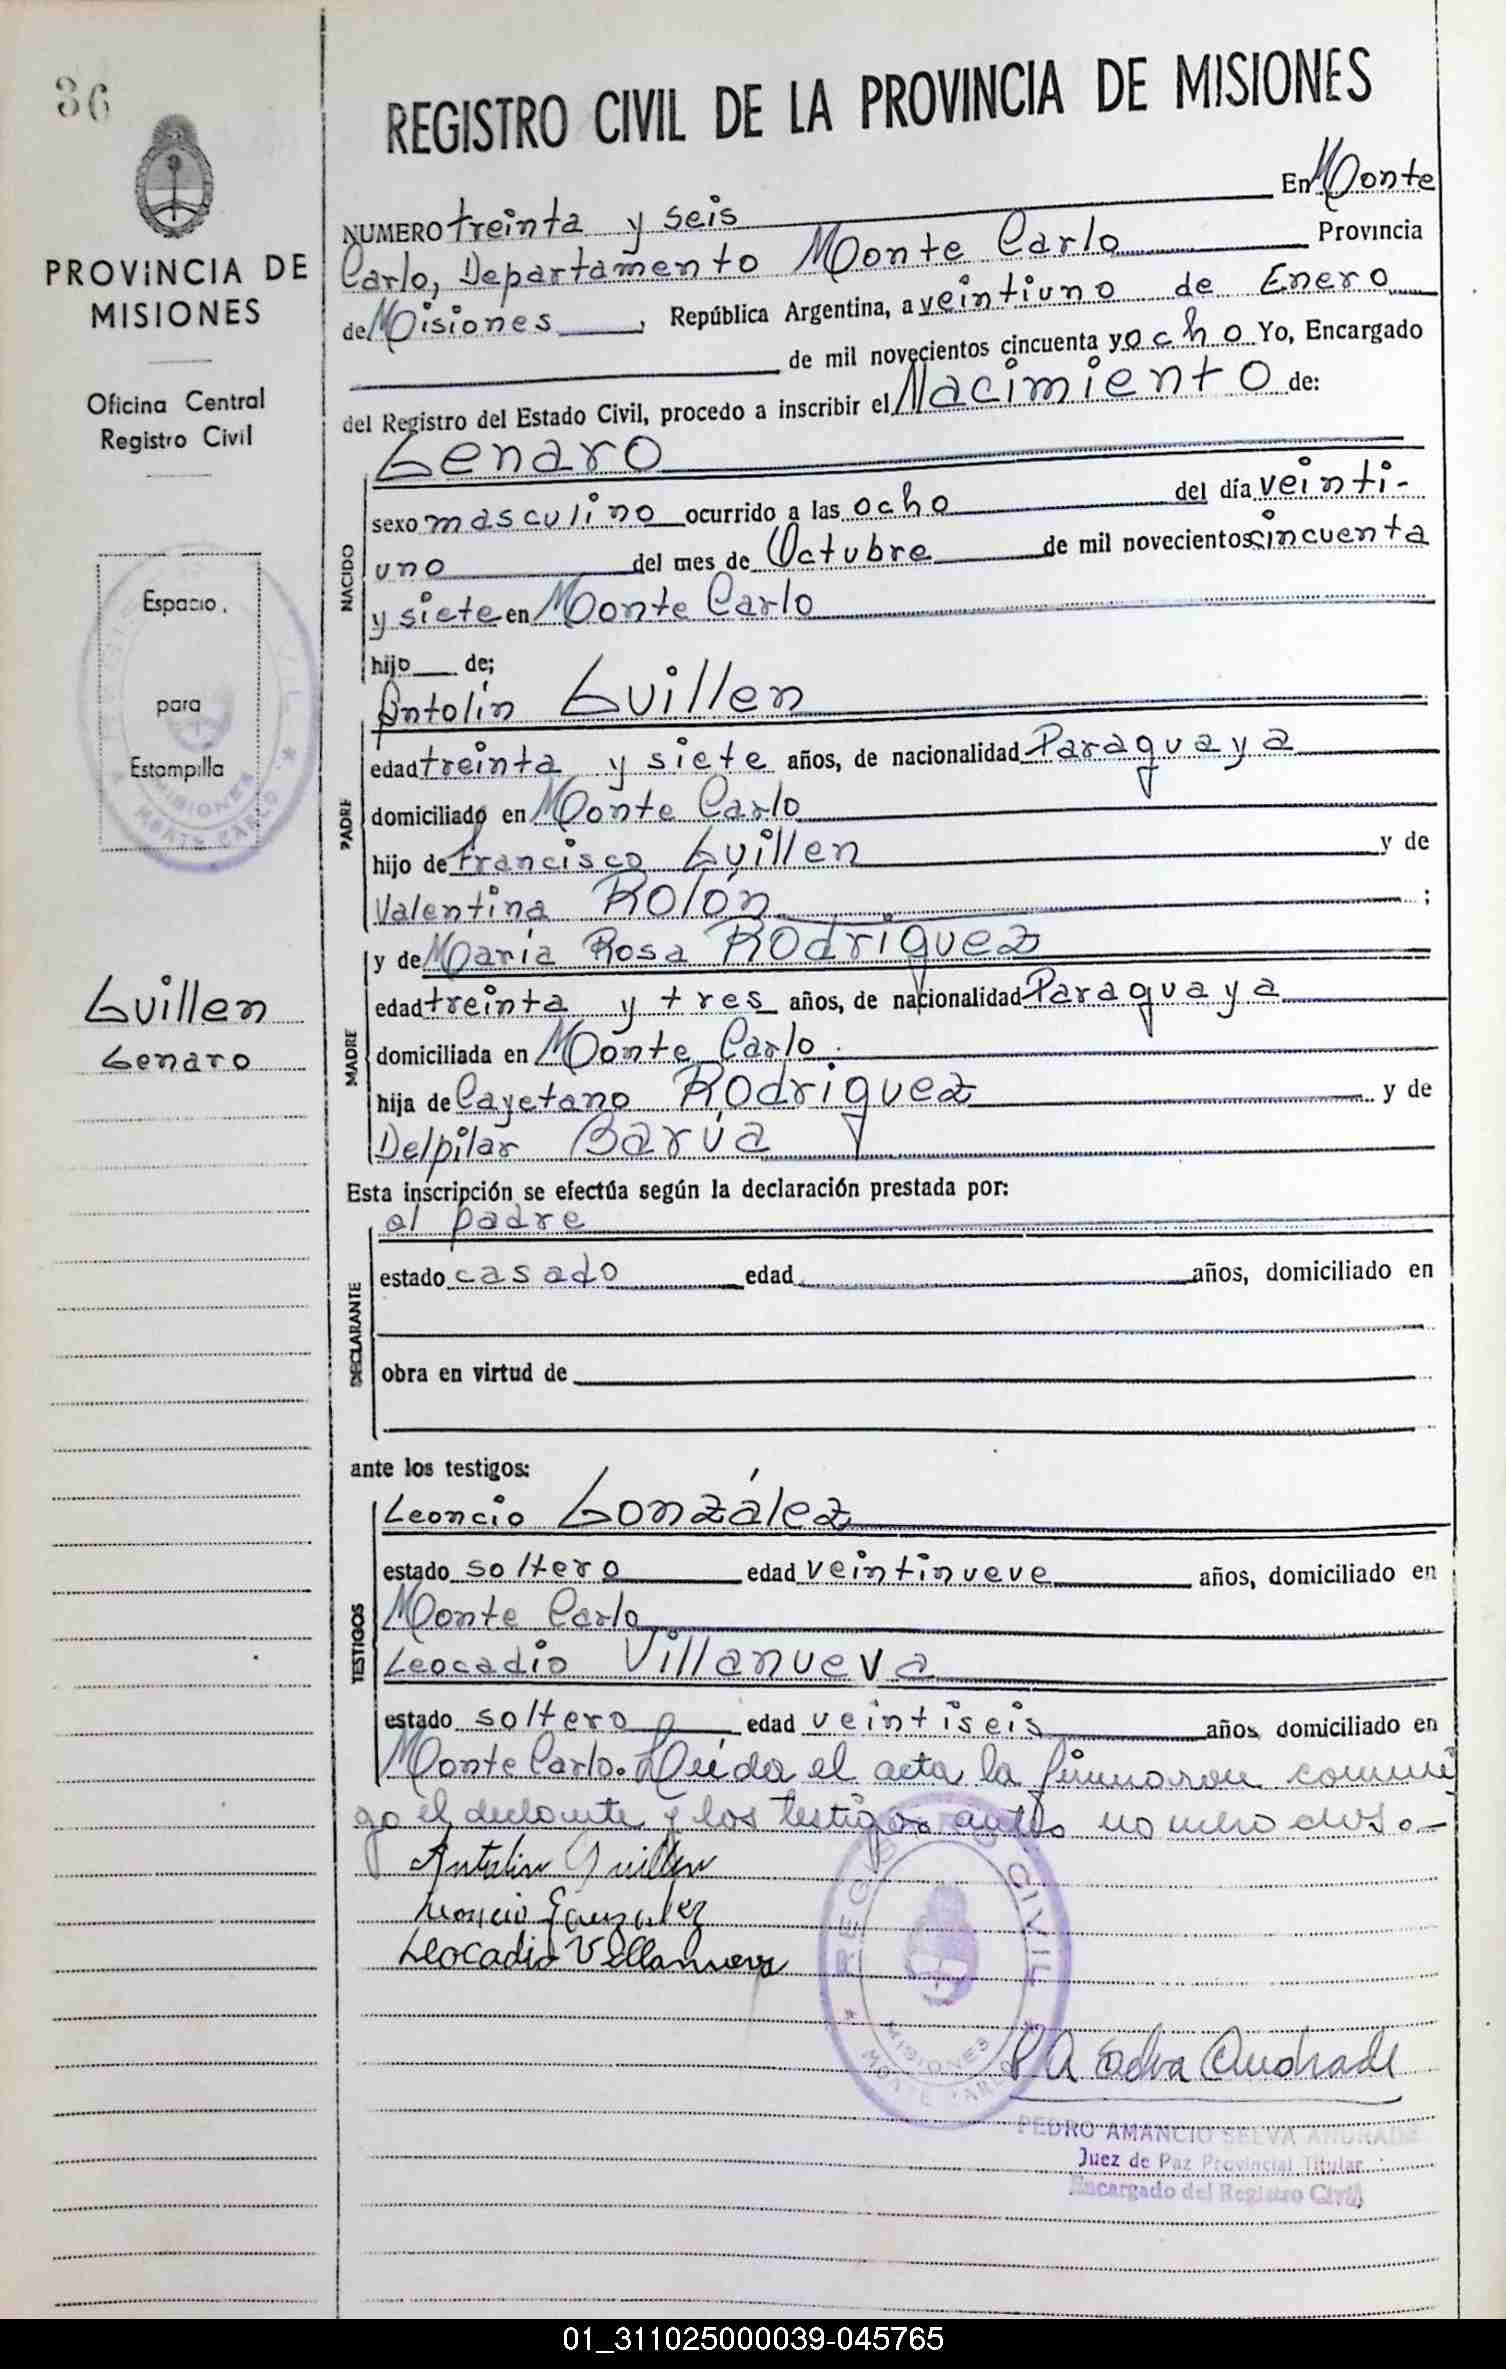 36
PROVINCIA DE
MISIONES
Oficina Central
Registro Civil
Espacio
para
Estampilla
MISIONES
MONTE CARLO
Guillen
Genaro
REGISTRO CIVIL DE LA PROVINCIA DE MISIONES
NUMERO treinta y seis En Monte
Carlo, Departamento Monte Carlo Provincia
de Misiones, República Argentina, a veintiuno de Enero
de mil novecientos cincuenta y ocho Yo, Encargado
del Registro del Estado Civil, procedo a inscribir el Nacimiento de:
NACIDO
Genaro
sexo masculino ocurrido a las ocho del día veinti-
uno del mes de Octubre de mil novecientos cincuenta
y siete en Monte Carlo
hijo de;
PADRE
Antolín Guillen
edad treinta y siete años, de nacionalidad Paraguaya
domiciliado en Monte Carlo
hijo de Francisco Guillen y de
Valentina Rolón ;
MADRE
y de María Rosa Rodriguez
edad treinta y tres años, de nacionalidad Paraguaya
domiciliada en Monte Carlo
hija de Cayetano Rodriguez y de
Delpilar Barúa
Esta inscripción se efectúa según la declaración prestada por:
DECLARANTE
el padre
estado casado edad años, domiciliado en
obra en virtud de
ante los testigos:
TESTIGOS
Leoncio González
estado soltero edad veintinueve años, domiciliado en
Monte Carlo
Leocadio Villanueva
estado soltero edad veintiseis años, domiciliado en
Monte Carlo. Leída el acta la firmaron conmi
go el declarante y los testigos antes nombrados.-
Antolin Guillen
Leoncio Gonzalez
Leocadio Villanueva
REGISTRO CIVIL
MISIONES
MONTE CARLO
P A Selva Andrade
PEDRO AMANCIO SELVA ANDRADE
Juez de Paz Provincial Titular
Encargado del Registro Civil
01_311025000039-045765